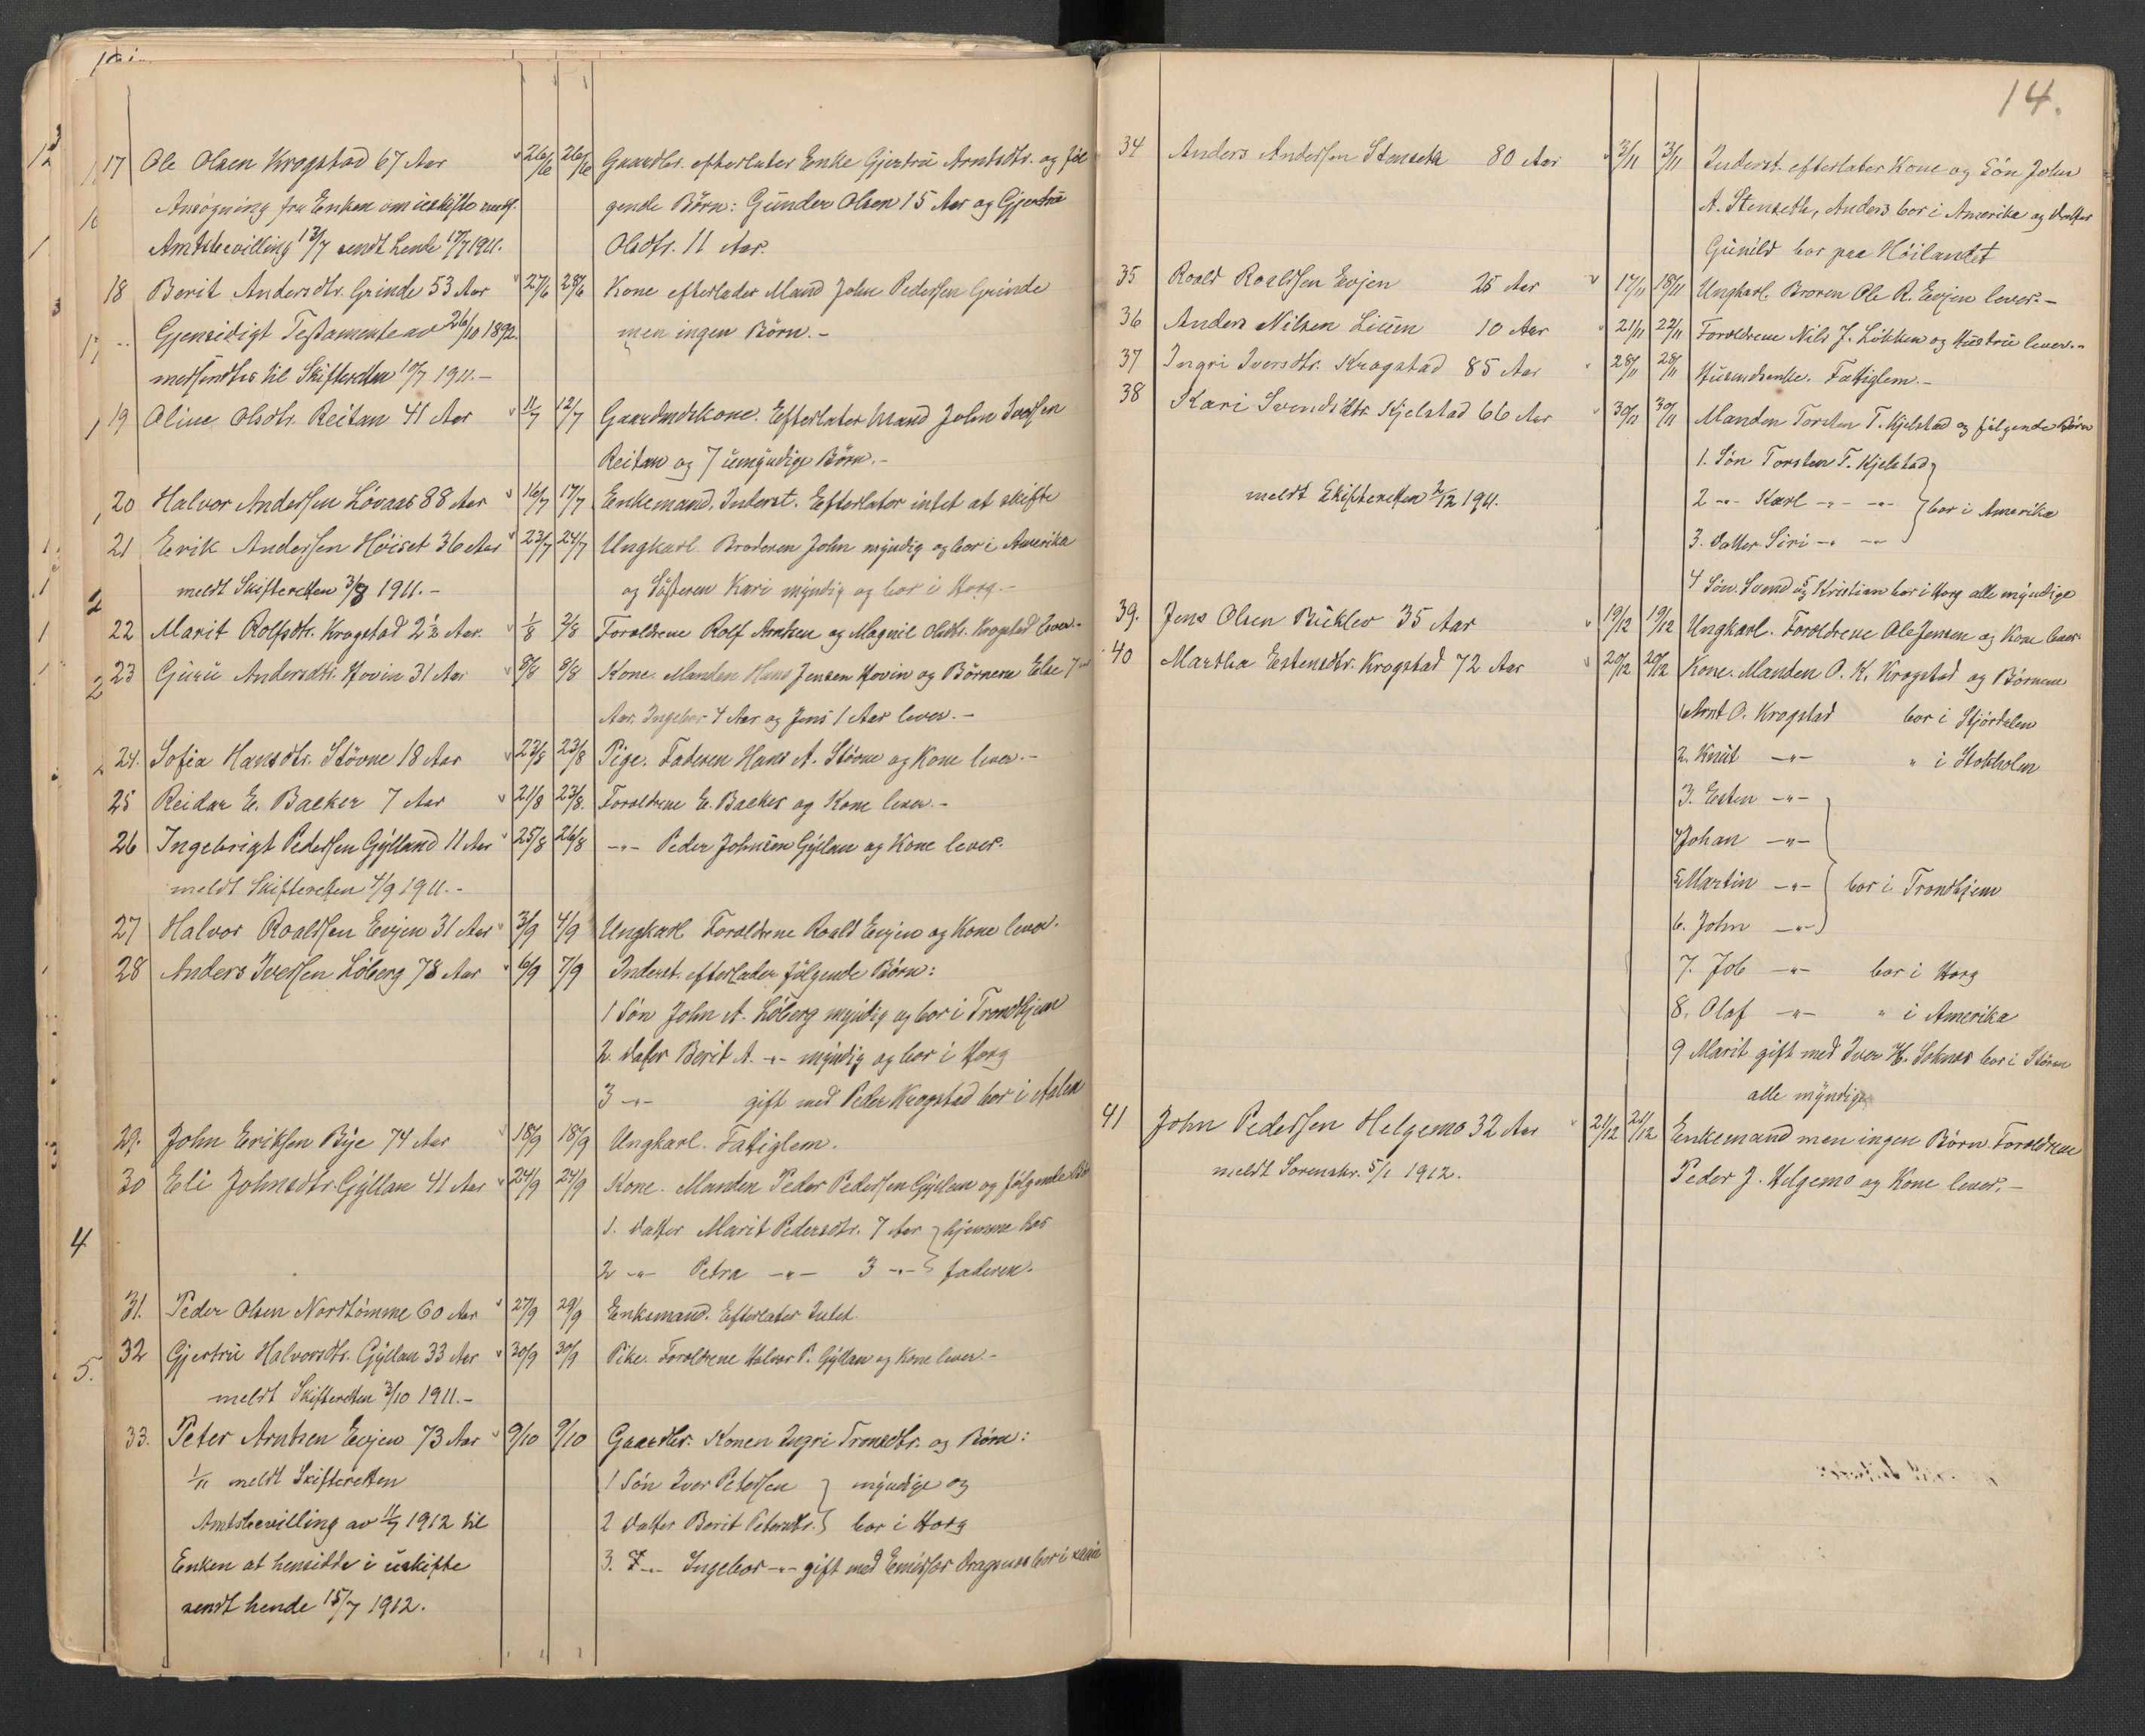 17 Ole Olsen Krogstad 67 Aar 26/6 26/6 Gaardbr. efterlater Enke Gjertrü Arntsdtr. og føl
Ansøgning fra Enken om uskifte
gende Børn: Günder Olsen 15 Aar og Gjertrü
Amtsbevilling 13/7 sendt hende 17/7 1911.
Olsdtr. 11 Aar.
18 Berit Andersdtr. Grinde 53 Aar 27/6 28/6 Kone efterlader Mand John Pedersen Grinde
Gjensidigt Testamente av 26/10 1892.
men ingen Børn. -
medsendtes til Skifteretten 10/7 1911. -
19 Oline Olsdtr. Reitan 41 Aar 11/7 12/7 Gaardmdskone. Efterlater Mand John Iversen
Reitan og 7 ümyndige Børn. -
20 Halvor Andersen Løvaas 88 Aar 16/7 17/7 Enkemand. Inderst. Efterlater intet at skifte
21 Erik Andersen Høiset 36 Aar 23/7 24/7 Ungkarl. Broderen John myndig og bor i Amerika
meldt Skifteretten 3/8 1911. -
og Søsteren Kari myndig og bor i Horg. -
22 Marit Rolfsdtr. Krogstad 2½ Aar. 1/8 2/8 Foreldrene Rolf Arntsen og Magnil Olsdtr. Krogstad lever. -
23 Gürü Andersdtr. Hovin 31 Aar 8/8 8/8 Kone. Manden Hans Jensen Hovin og Børnene Else 7
Aar. Ingebor 4 Aar og Jens 1 Aar lever. -
24. Sofia Hansdtr. Støvne 18 Aar 22/8 23/8 Pige. Faderen Hans A. Støvne og Kone lever. -
25 Reidar E. Backer 7 Aar 21/8 23/8. Foreldrene E. Backer og Kone lever. -
26 Ingebrigt Pedersen Gylland 11 Aar 25/8 26/8 -"- Peder Johnsen Gyllan og Kone lever.
meldt Skifteretten 4/9 1911. -
27 Halvor Roaldsen Evjen 31 Aar 3/9 4/9 Ungkarl Foreldrene Roald Evjen og Kone lever.
28 Anders Iversen Løberg 78 Aar 6/9 7/9 Inderst. efterlader følgende Børn:
1 Søn John A. Løberg myndig og bor i Trondhjem
2. Datter Berit A. -"- myndig og bor i Horg
3 -"- gift med Peder Krogstad bor i Aalen
29. John Eriksen Bye 74 Aar 18/9 18/9 Ungkarl. Fatiglem.
30 Eli Johnsdtr. Gyllan 41 Aar 24/9 24/9 Kone. Manden Peder Pedersen Gyllan og følgende Bør
1. Datter Marit Pedersdtr. 7 Aar } hjemme hos
2 -"- Petra -"- 3 -"- } faderen.
31. Peder Olsen Nordtømme 60 Aar 27/9 29/9 Enkemand. Efterlater Intet.
32 Gjertrü Halvorsdtr. Gyllan 33 Aar 30/9 30/9 Pike. Foreldrene Halvor P. Gyllan og Kone lever. -
meldt Skifteretten 3/10 1911. -
33. Peter Arntsen Evjen 73 Aar 9/10 9/10 Gaardbr. Konen Ingri Tronsdtr. og Børn:
1/11 meldt Skifteretten
1 Søn Iver Petersen } myndige og
Amtsbevilling av 11/7 1912 til
2 Datter Berit Petersdtr. } bor i Horg
Enken at hensidde i uskifte
3. -"- Ingebor -"- gift med Dragsnes bor i
sendt hende 15/7 1912.
4
5.
14.
34 Anders Andersen Stenseth 80 Aar 3/11 3/11 Inderst. efterlater Kone og Søn John
A. Stenseth, Anders bor i Amerika og Datter
Günild bor paa Høilandet
35 Roald Roaldsen Evjen 25 Aar 17/11 18/11 Ungkarl. Broren Ole R. Evjen lever. -
36 Anders Nilsen Liüm 10 Aar 21/11 22/11 Foreldrene Nils J. Løkken og Hustrü lever. -
37 Ingri Iversdtr. Krogstad 85 Aar 28/11 28/11 Husmdsenke. Fattiglem. -
38 Kari Svendsdtr. Kjelstad 66 Aar 30/11 30/11 Manden Torsten T. Kjelstad og følgende Børn
1. Søn Torsten T. Kjelstad }
meldt Skifteretten 2/12 1911.
2 -"- Karl -"- -"- } bor i Amerika
3. Datter Siri -"- -"- }
4 Søn Svend og 5 Kristian bor i Horg alle myndige
39. Jens Olsen Bükler 35 Aar 19/12 19/12 Ungkarl. Foreldrene Ole Jensen og Kone lever
40 Martha Estensdtr. Krogstad 72 Aar 20/12 20/12 Kone. Manden O. K. Krogstad og Børnene
1 Arnt O. Krogstad bor i Stjørdalen
2. Knüt -"- " i Stokholm
3. Esten -"- }
4 Johan -"- }
5 Martin -"- } bor i Trondhjem
6. John -"- }
7. Job -"- bor i Horg
8. Olaf -"- " i Amerika
9 Marit gift med Iver H. Soknes bor i Støren
alle myndige
41 John Pedersen Helgemo 32 Aar 21/12 21/12 Enkemand men ingen Børn. Foreldrene
meldt Sorenskr. 5/1 1912.
Peder J. Helgemo og Kone lever. -